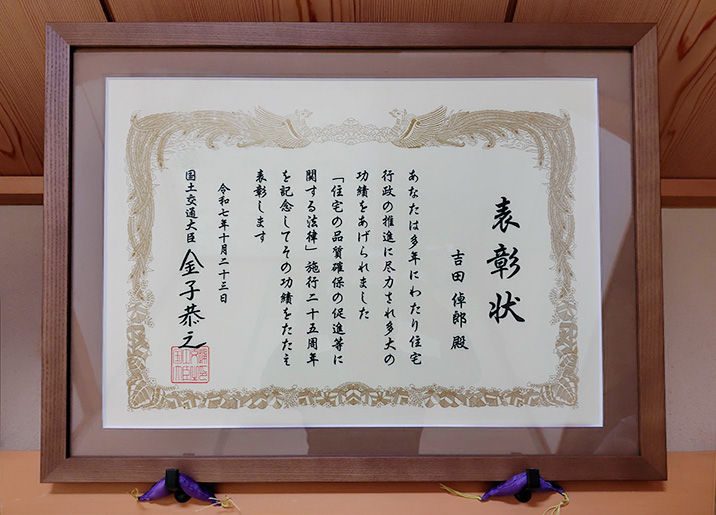 表彰状
吉田倬郎殿
あなたは多年にわたり住宅
行政の推進に尽力され多大の
功績をあげられました
「住宅の品質確保の促進等に
関する法律」施行二十五周年
を記念してその功績をたたえ
表彰します
令和七年十月二十三日
国土交通大臣 金子恭之